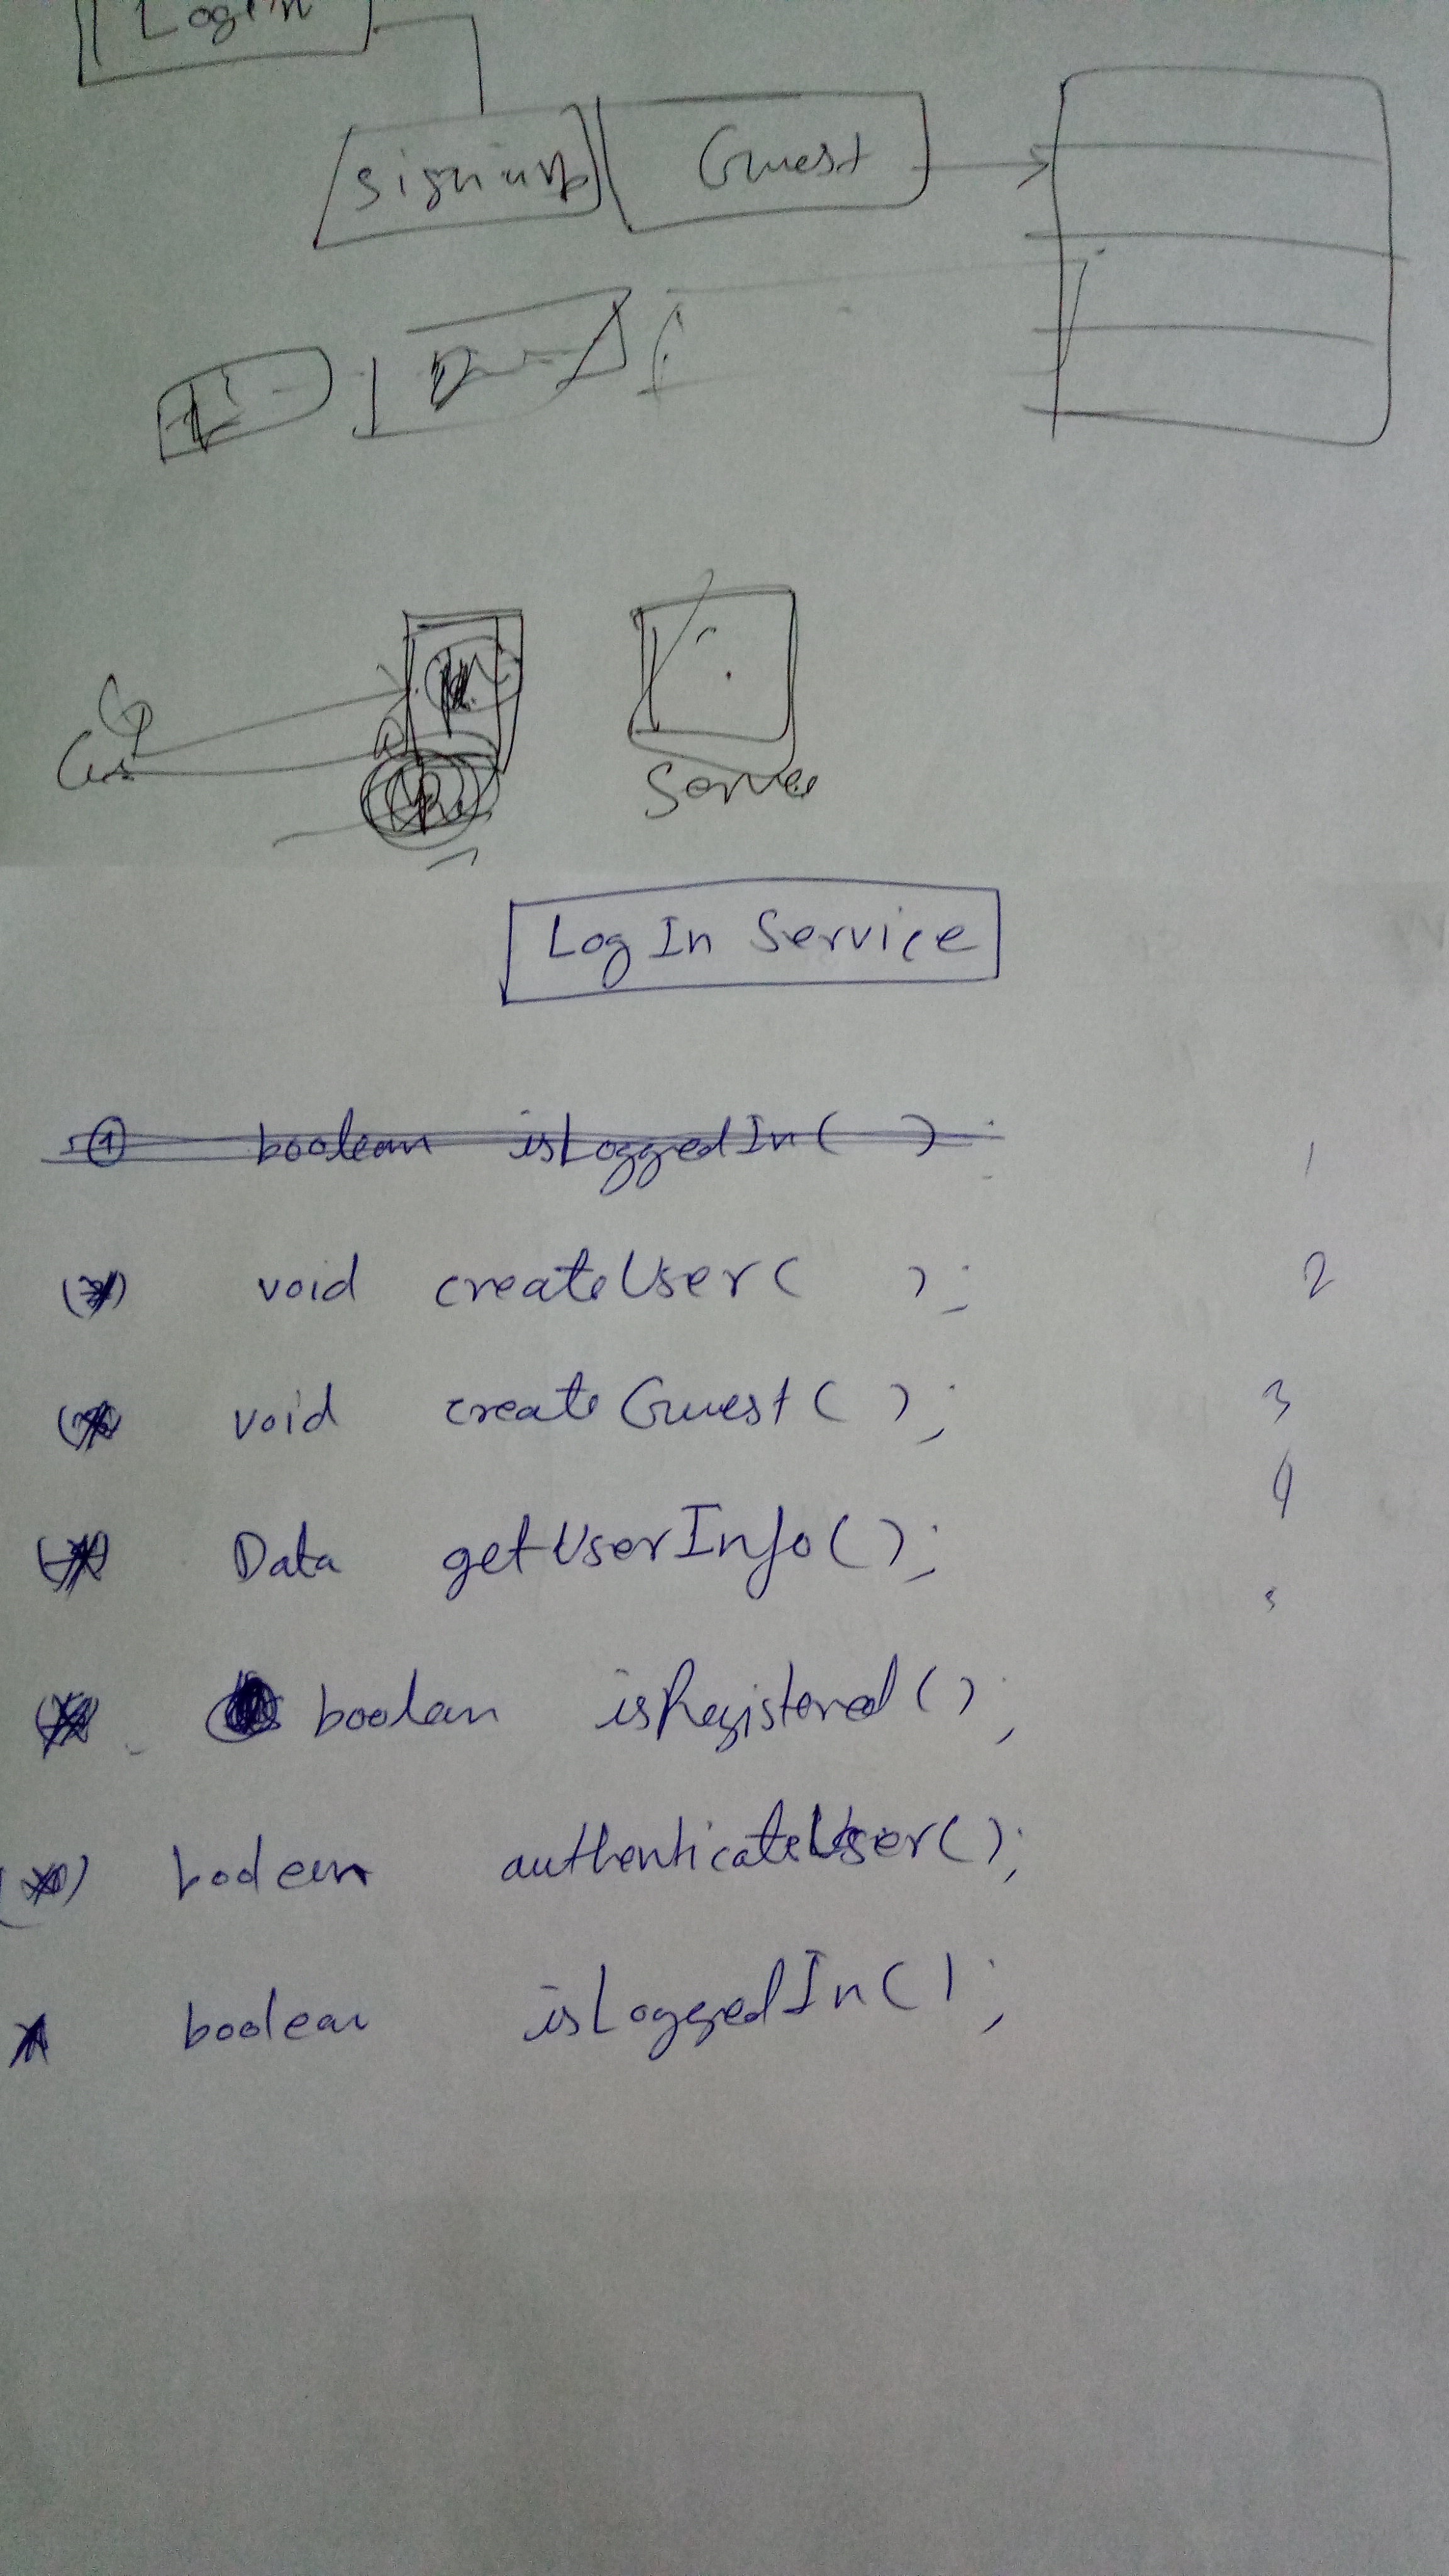 Login
signup Guest
Server
Log In Service
① boolean isLoggedIn( ) 1
void createUser( ); 2
void createGuest( ); 3
4
Data getUserInfo( );
5
boolean isRegistered( );
boolean authenticateUser( );
boolean isLoggedIn( );